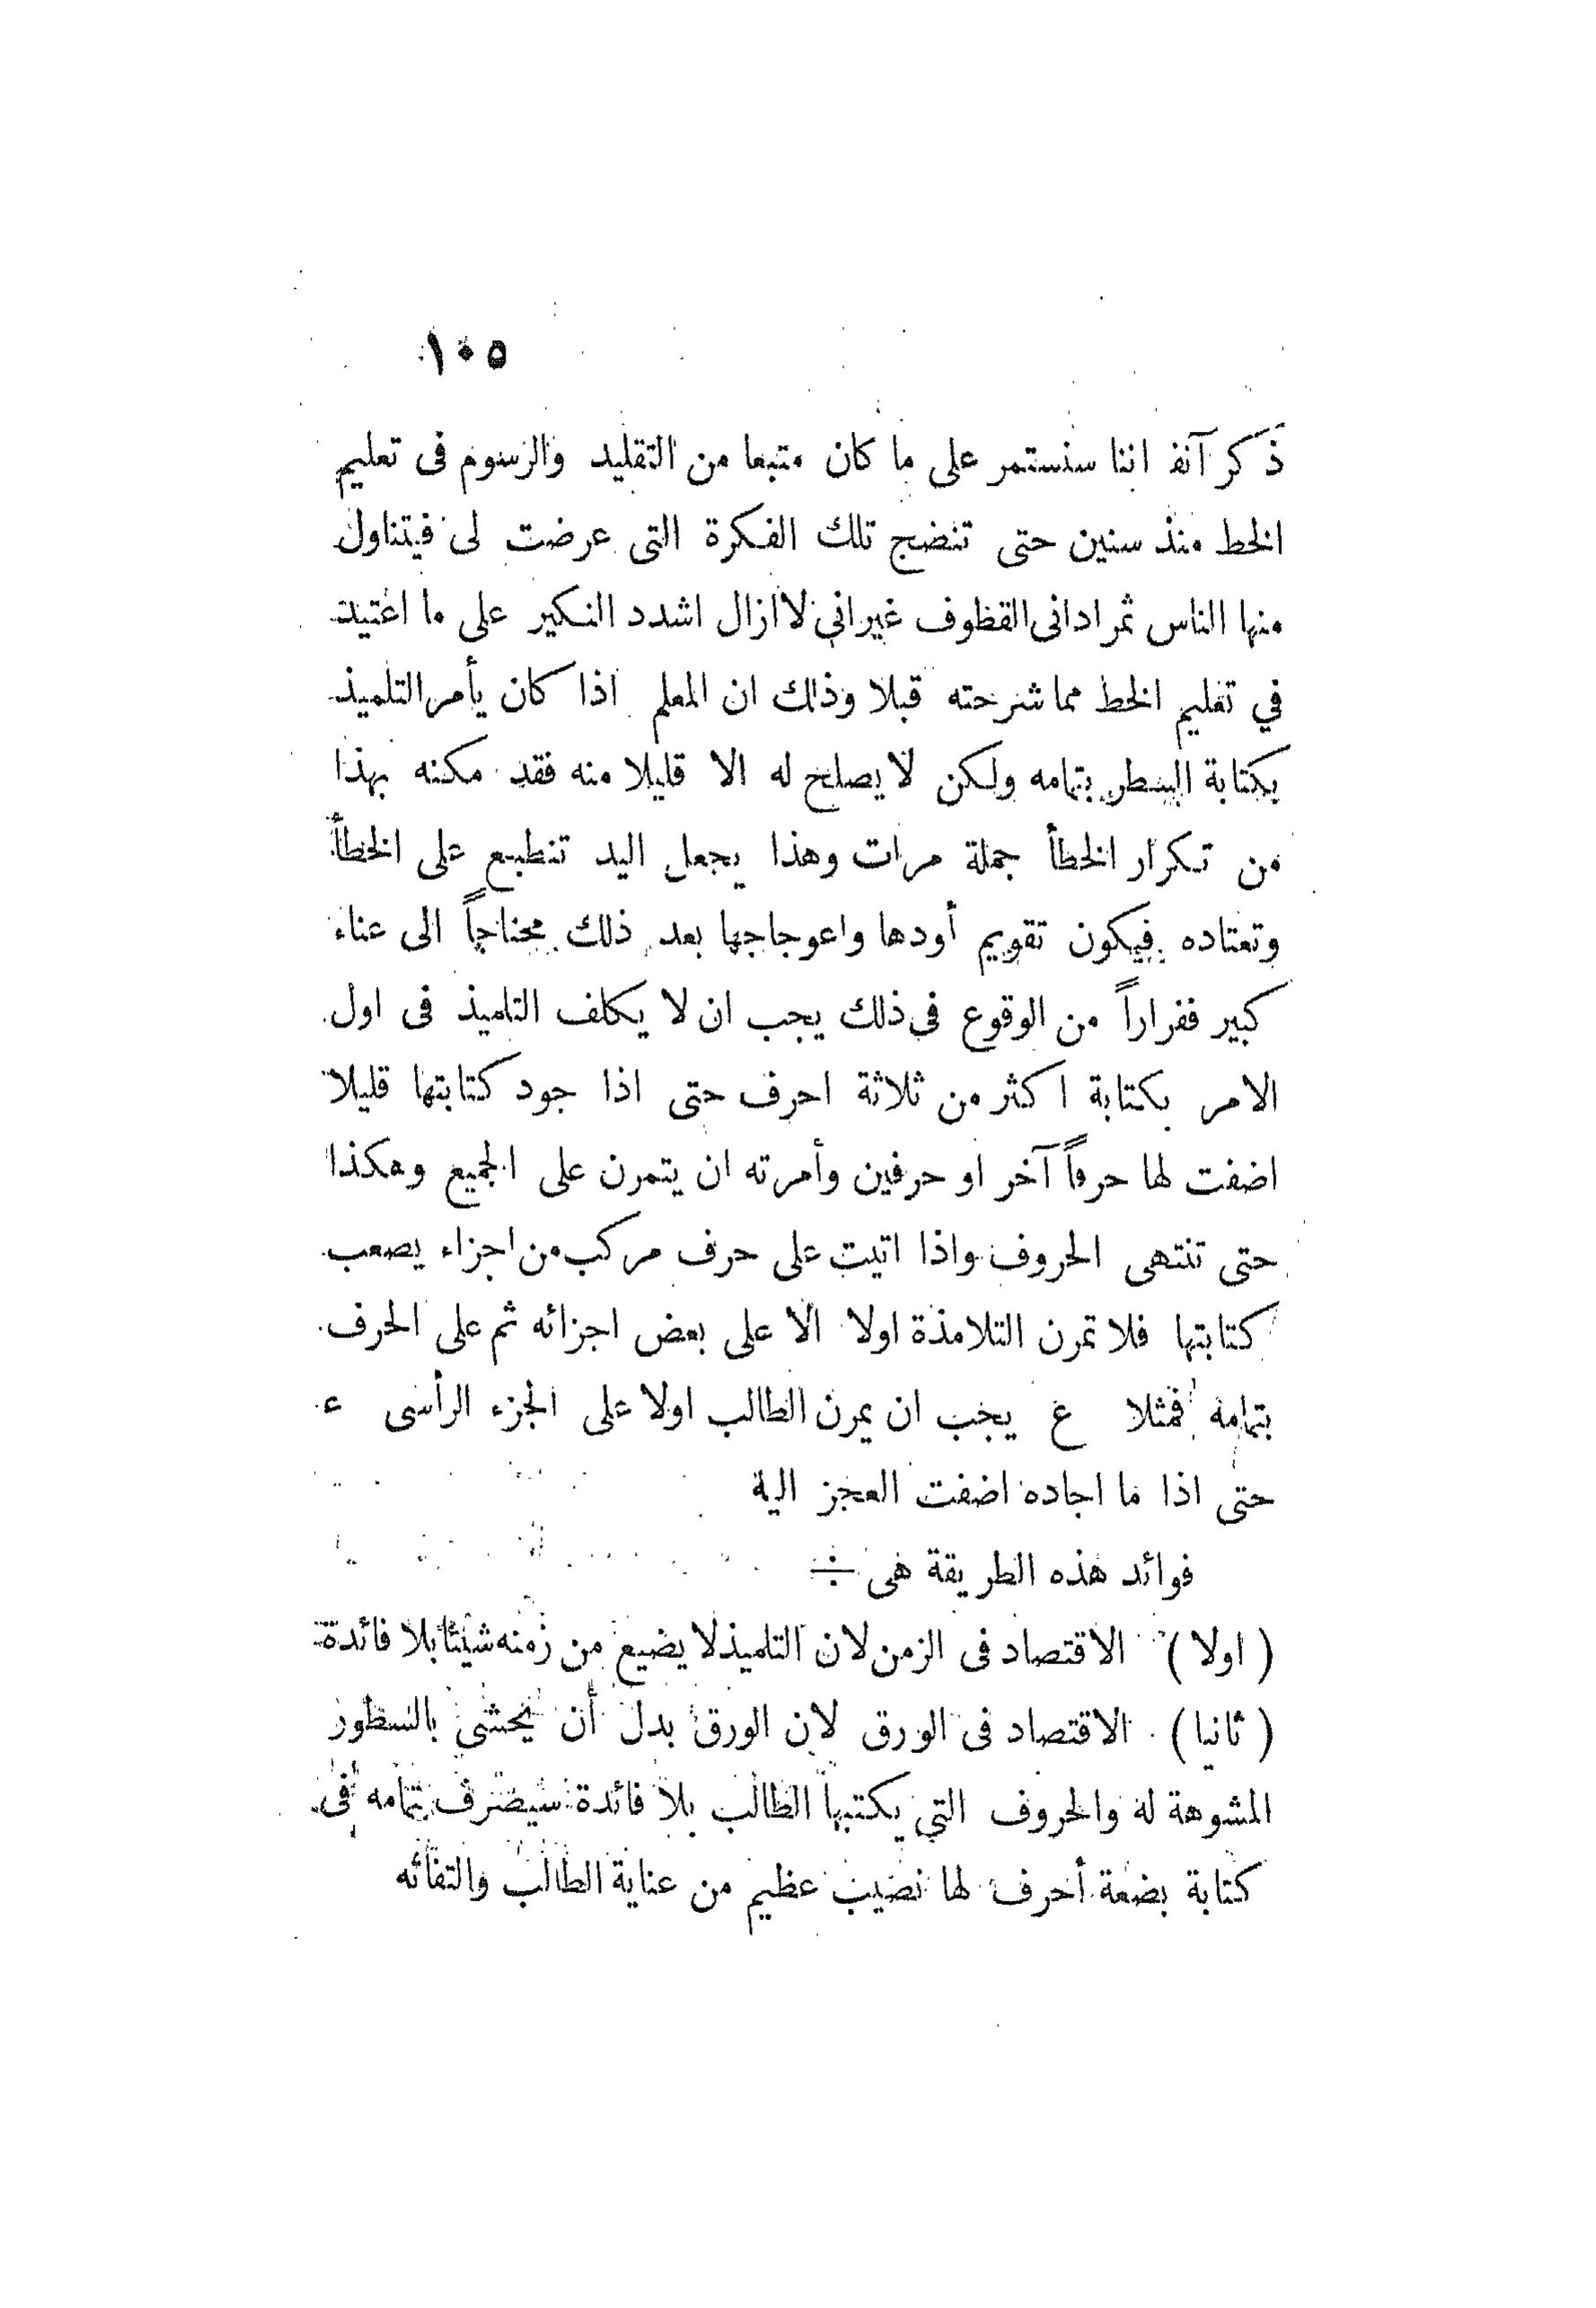 ١٠٥
ذكر آنفا اننا سنستمر على ما كان متبعا من التقليد والرسوم فى تعليم
الخط منذ سنين حتى تنضج تلك الفكرة التى عرضت لى فيتناول
منها الناس ثمرا دانى القطوف غير انى لا ازال اشدد النكير على ما اعتيد
في تعليم الخط مما شرحته قبلا وذلك ان المعلم اذا كان يأمر التلميذ
بكتابة السطر بتمامه ولكن لا يصلح له الا قليلا منه فقد مكنه بهذا
من تكرار الخطأ جملة مرات وهذا يجعل اليد تنطبع على الخطأ
وتعتاده فيكون تقويم أودها واعوجاجها بعد ذلك محتاجاً الى عناء
كبير ففراراً من الوقوع فى ذلك يجب ان لا يكلف التلميذ فى اول
الامر بكتابة اكثر من ثلاثة احرف حتى اذا جود كتابتها قليلا
اضفت لها حرفاً آخر او حرفين وأمرته ان يتمرن على الجميع وهكذا
حتى تنتهى الحروف واذا اتيت على حرف مركب من اجزاء يصعب
كتابتها فلا تمرن التلامذة اولا الا على بعض اجزائه ثم على الحرف
بتمامه فمثلا ع يجب ان يمرن الطالب اولا على الجزء الرأسى ء
حتى اذا ما اجاده اضفت العجز اليه
فوائد هذه الطريقة هى ÷
( اولا ) الاقتصاد فى الزمن لان التلميذ لا يضيع من زمنه شيئا بلا فائدة
( ثانيا ) الاقتصاد فى الورق لان الورق بدل أن يحشى بالسطور
المشوهة له والحروف التي يكتبها الطالب بلا فائدة سيصرف بتمامه فى
كتابة بضعة أحرف لها نصيب عظيم من عناية الطالب والتفائه